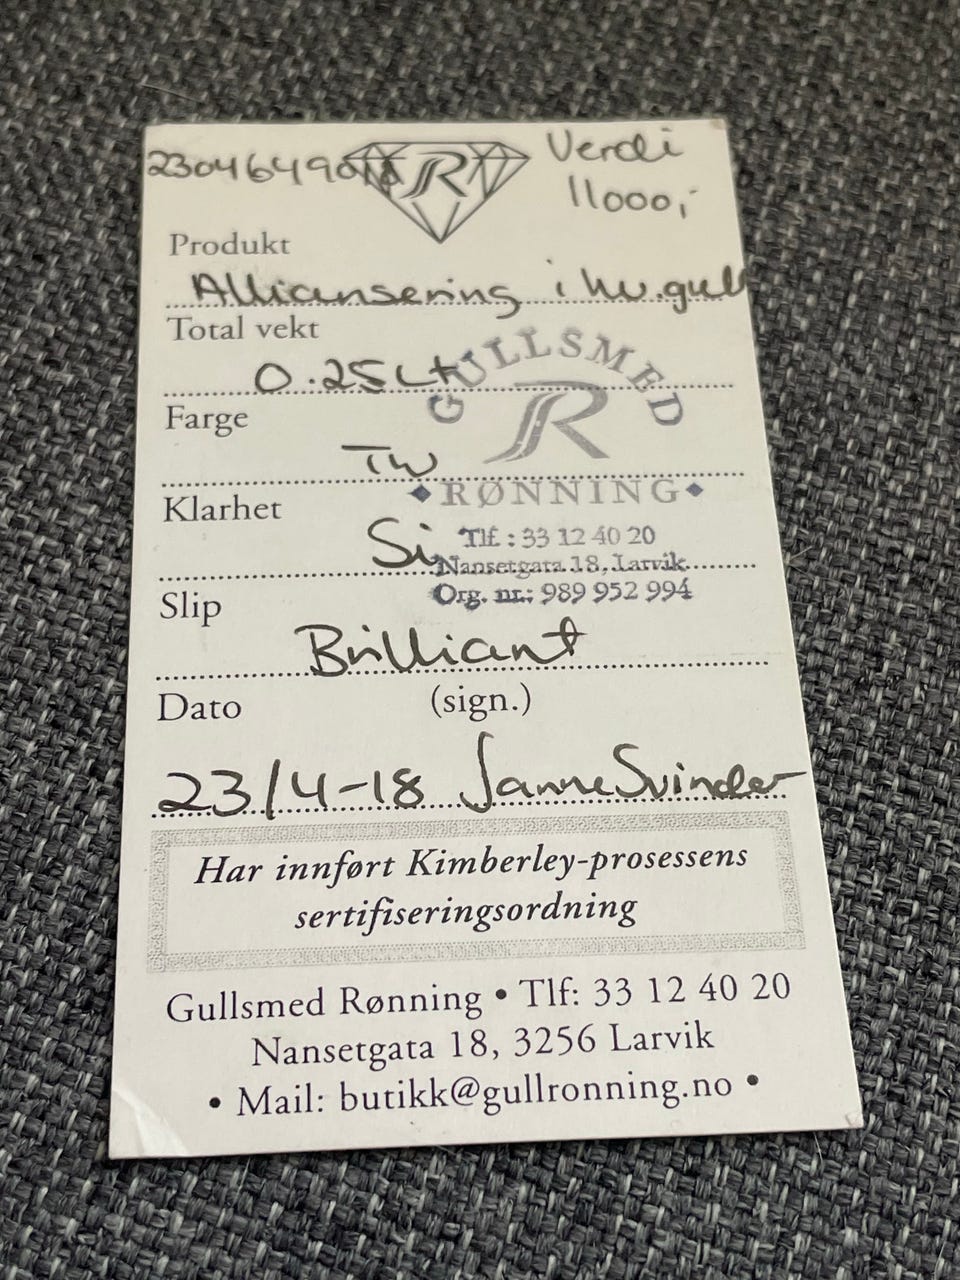 Verdi
11000,-
R
Produkt
Alliansering i hv.gull
Total vekt
0.25ct
Farge
TW
Klarhet
Si
Slip
Brilliant
Dato (sign.)
23/4-18 Janne Svinder
GULLSMED
R
RØNNING
Tlf.: 33 12 40 20
Nansetgata 18, Larvik
Org. nr.: 989 952 994
Har innført Kimberley-prosessens
sertifiseringsordning
Gullsmed Rønning • Tlf: 33 12 40 20
Nansetgata 18, 3256 Larvik
• Mail: butikk@gullronning.no •